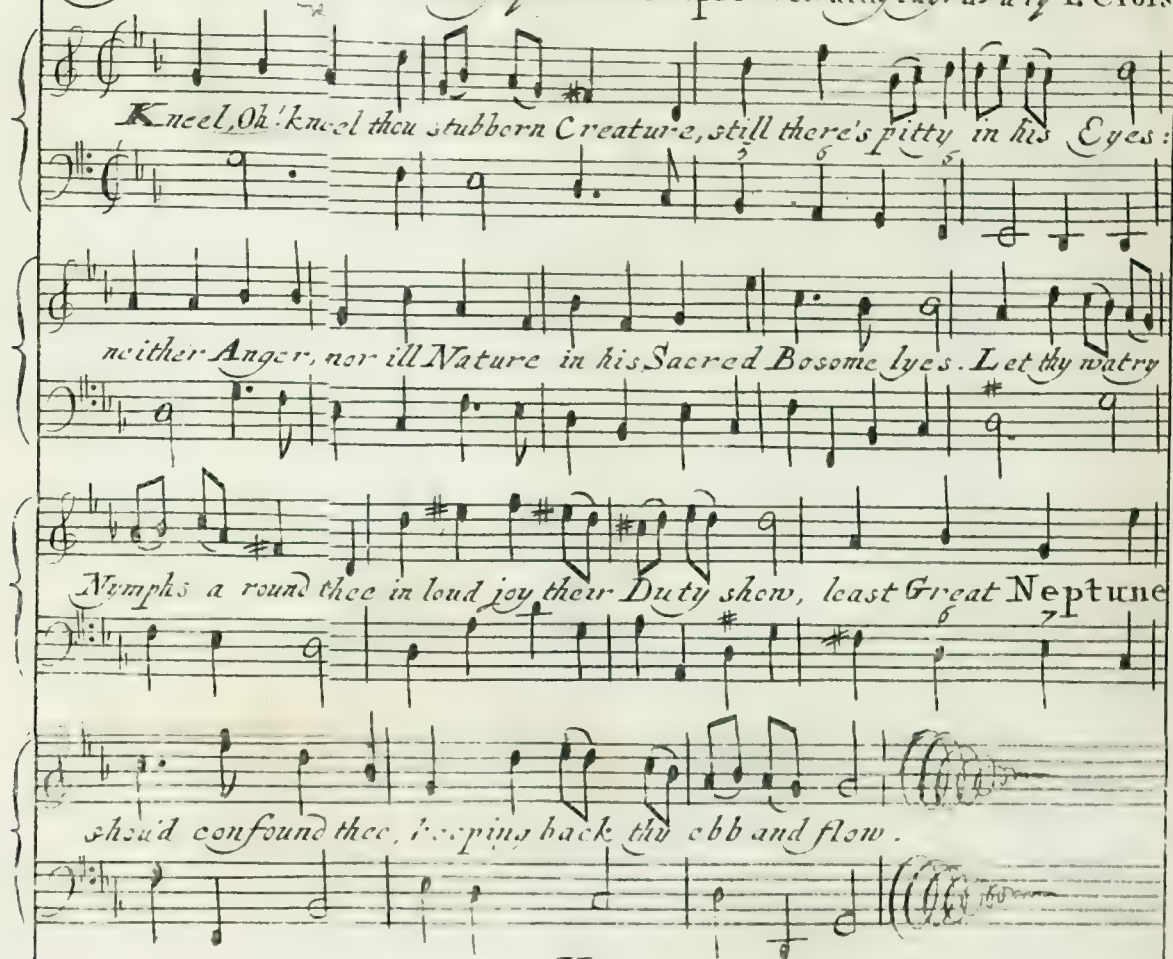 T. Cross
Kneel, Oh! kneel thou stubborn Creature, still there's pitty in his Eyes:
5 6 6
neither Anger, nor ill Nature in his Sacred Bosome lyes. Let thy watry
Nymphs a round thee in loud joy their Duty show, least Great Neptune
6 7
shou'd confound thee, keeping back thy ebb and flow.